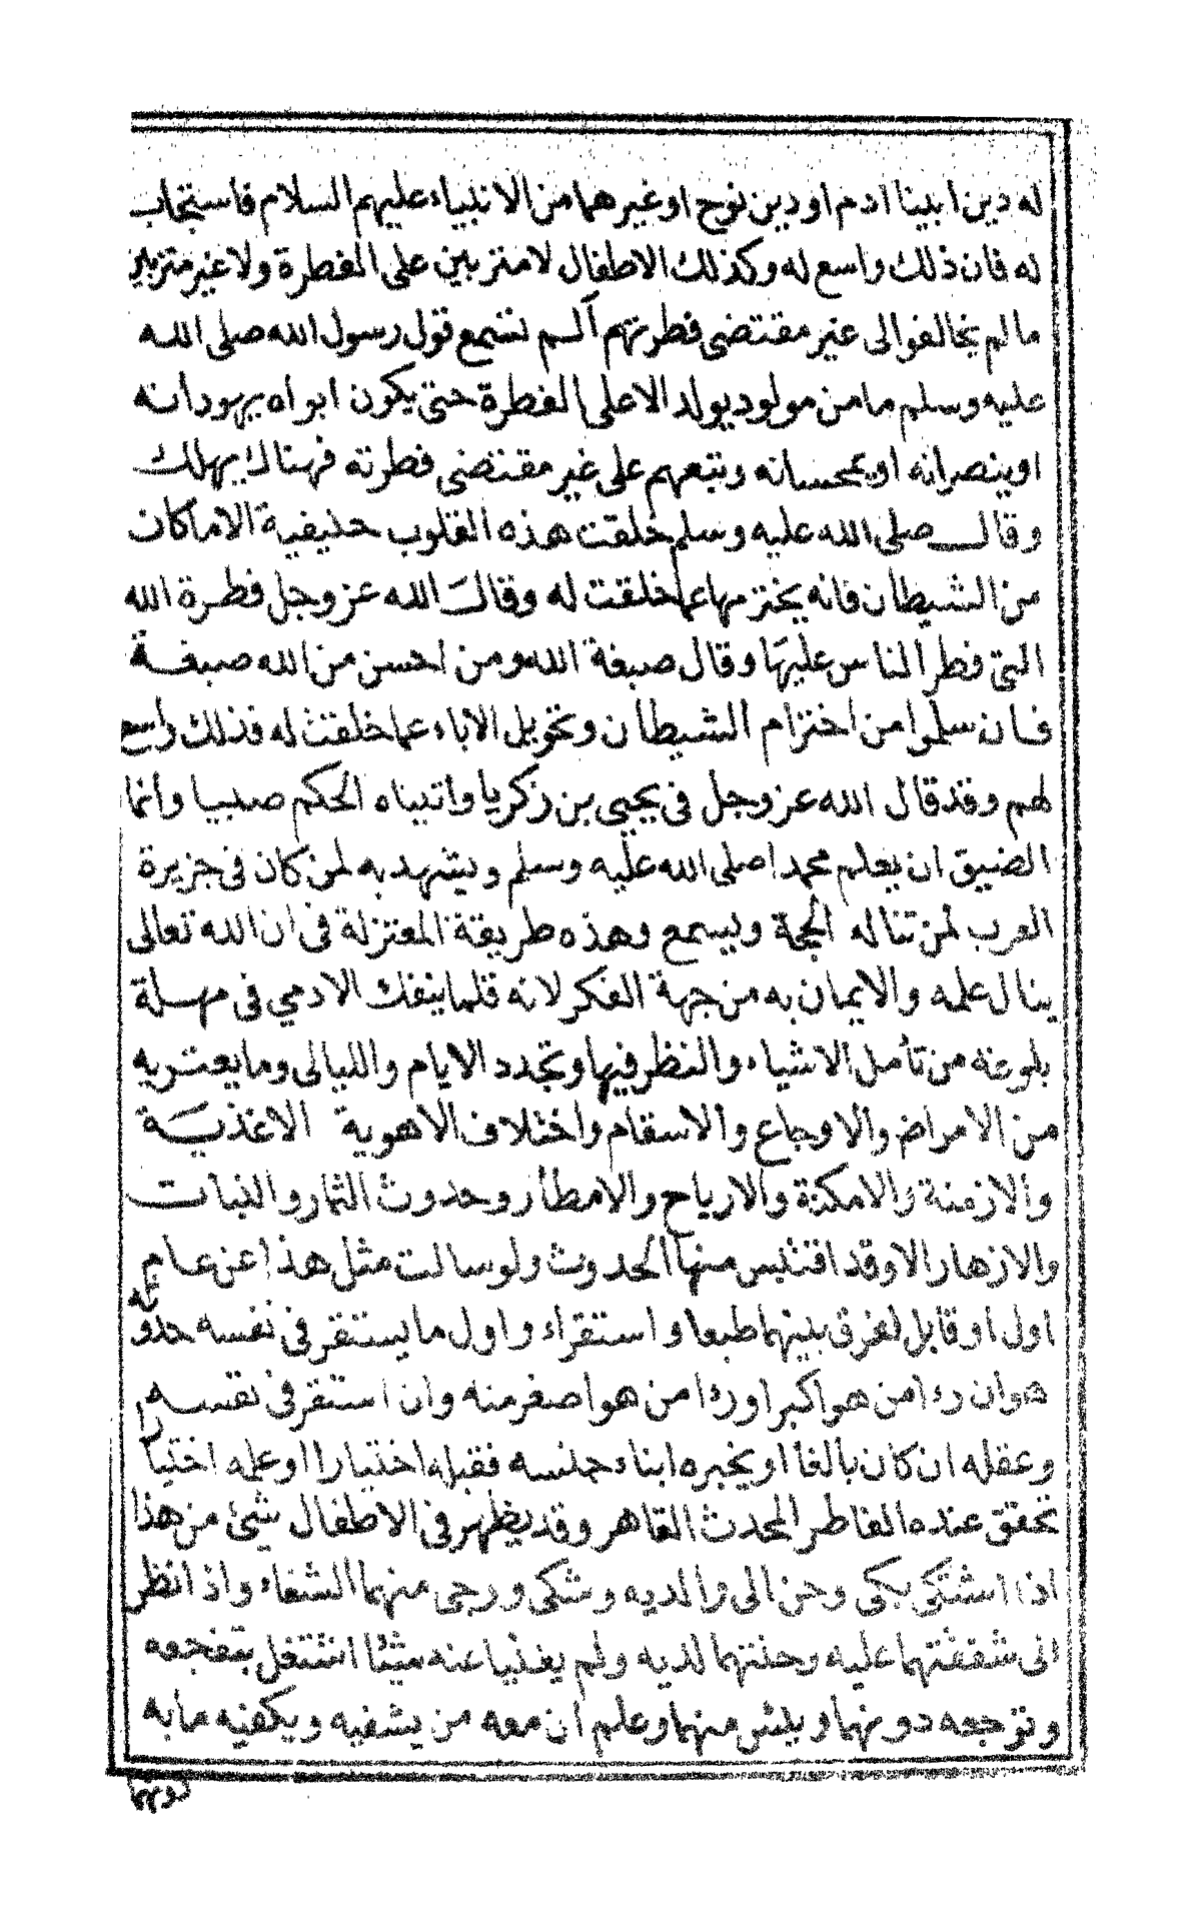 له دين ابينا ادم او دين نوح او غيرهما من الانبياء عليهم السلام فاستجاب
له فان ذلك واسع له وكذلك الاطفال لا متربين على الفطرة ولا غير متربين
ما لم يخالفوا الى غير مقتضى فطرتهم آلم تسمع قول رسول الله صلى الله
عليه وسلم ما من مولود يولد الا على الفطرة حتى يكون ابواه يهودانه
او ينصرانه او يمجسانه وتتبعهم على غير مقتضى فطرته فهناك يهلك
وقال صلى الله عليه وسلم خلقت هذه القلوب حنيفية الا ما كان
من الشيطان فانه يخترمها عما خلقت له وقال الله عز وجل فطرة الله
التى فطر الناس عليها وقال صبغة الله ومن احسن من الله صبغة
فان سلموا من اخترام الشيطان وتحويل الاباء عما خلقت له فذلك واسع
لهم وقد قال الله عز وجل فى يحيى بن زكريا واتيناه الحكم صبيا وانما
الضيق ان يعلم محمدا صلى الله عليه وسلم ويشهد به لمن كان فى جزيرة
العرب لمن تناله الحجة ويسمع وهذه طريقة المعتزلة فى ان الله تعالى
ينال علمه والايمان به من جهة الفكر لانه قلما ينفك الادمي فى مهلة
بلوغه من تأمل الاشياء والنظر فيها وتجدد الايام والليالى وما يعتريه
من الامراض والاوجاع والاسقام واختلاف الاهوية الاغذية
والازمنة والامكنة والارياح والامطار وحدوث الثمار والنبات
والازهار الا وقد اقتبس منها الحدوث ولو سالت مثل هذا عن عام
اول او قابل لفرق بينهما طبعا واستقراء واول ما يستقر فى نفسه حدوثه
هو ان رءا من هو اكبر او رءا من هو اصغر منه وان استقر فى نفسه
وعقله ان كان بالغا او يخبره ابناء جنسه فقبله اختيارا او علمه اختيارا
تحقق عنده الفاطر المحدث القاهر وقد يظهر فى الاطفال شئ من هذا
اذا اشتكى بكى وحن الى والديه وشكى ورجى منهما الشفاء واذا نظر
الى شفقتهما عليه وحنتهما لديه ولم يغنيا عنه شيئا اشتغل بتفجعه
وتوجعه دونهما ويئس منهما وعلم ان معه من يشفيه ويكفيه ما به
دونهما